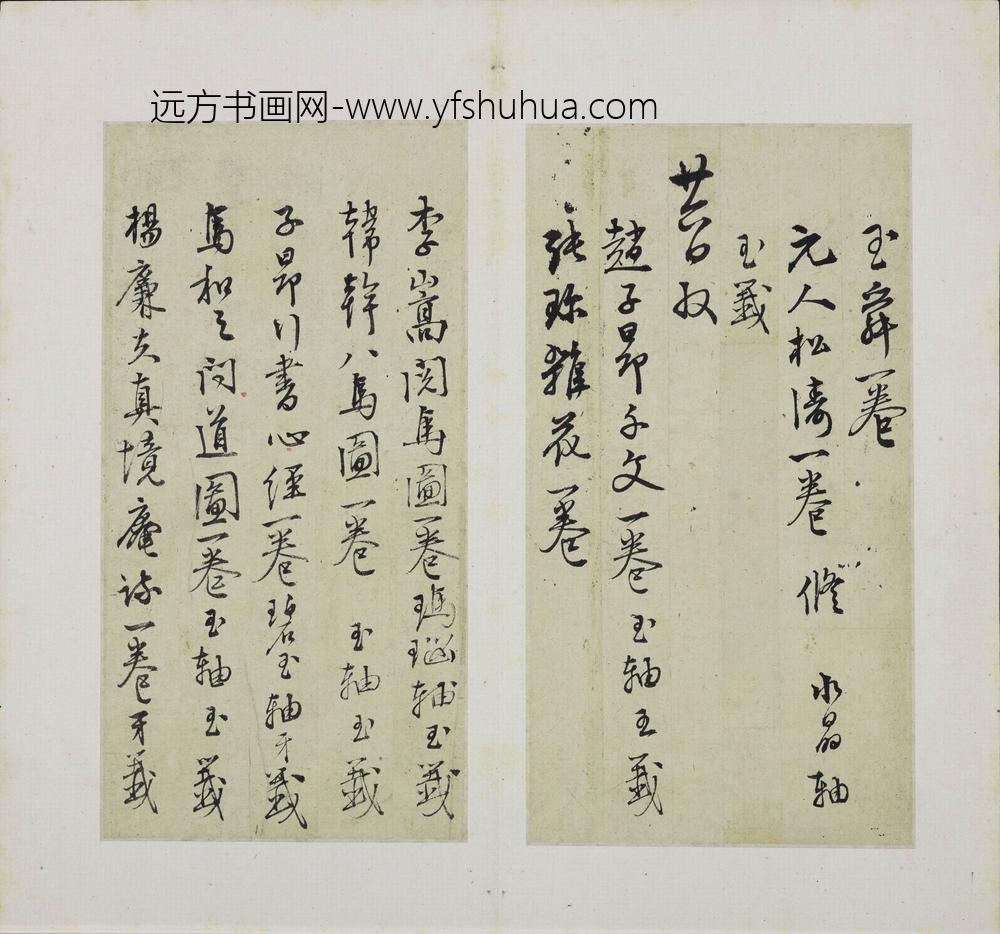 远方书画网-www.yfshuhua.com
玉 一卷
元人松濤一卷 修 水晶軸
玉籤
廿六日收
趙子昂千文一卷玉軸玉籤
張珎雜花一卷
李嵩閱馬圖一卷瑪瑙軸玉籤
韓幹八馬圖一卷 玉軸玉籤
子昂行書心經一卷碧玉軸牙籤
馬和之問道圖一卷玉軸玉籤
楊廉夫真境庵詩一卷牙籤